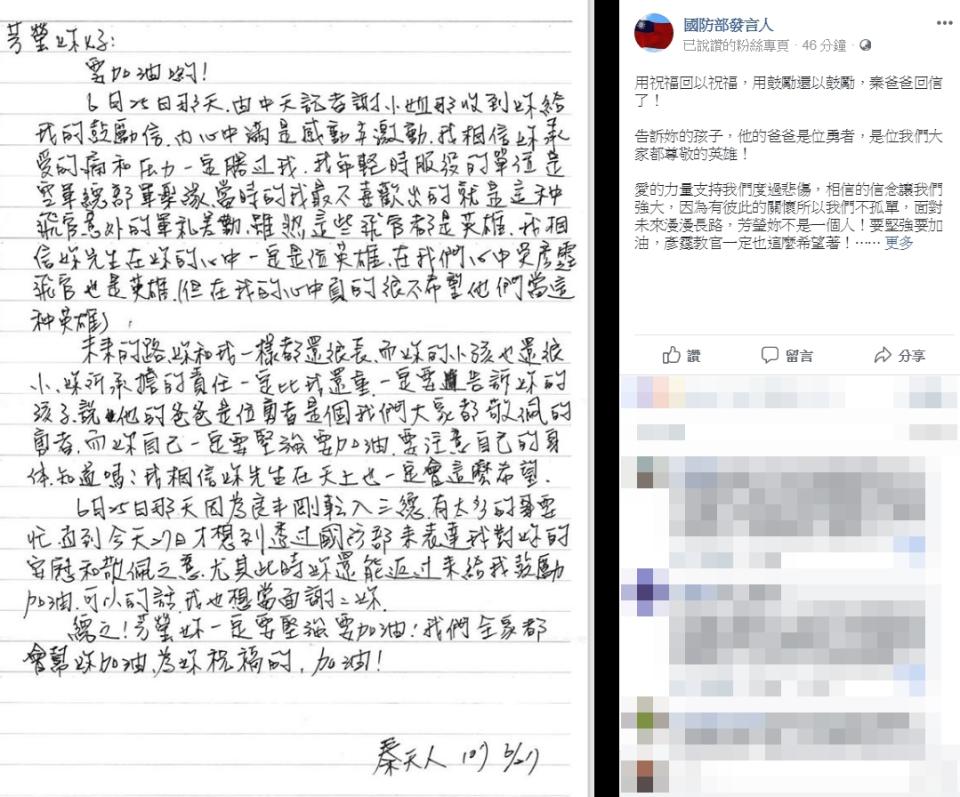 芳瑩妳好:
要加油喲!
6月25日那天,由中天記者謝小姐那收到妳給
我的鼓勵信,內心中滿是感動與激動,我相信妳承
受的痛和压力一定勝过我,我年輕時服役的單位是
空軍總部軍樂隊,當時的我最不喜歡出的就是這种
飛官意外的軍礼差勤,雖然這些飛官都是英雄,我相
信妳先生在妳的心中一定是位英雄,在我們心中吳彥霆
飛官也是英雄,(但在我的心中真的很不希望他們當這
种英雄)。
未來的路,妳和我一樣都還很長,而妳的小孩也還很
小,妳所承擔的責任一定比我還重,一定要告訴妳的
孩子說他的爸爸是位勇者是個我們大家都敬佩的
勇者,而妳自己一定要堅強要加油,要注意自己的身
体知道嗎?我相信妳先生在天上也一定會這麼希望.
6月25日那天因為良丰剛転入三總,有太多的事要
忙,直到今天27日才想到透过國防部來表達我對妳的
安慰和敬佩之意,尤其此時妳還能返过來給我鼓勵
加油,可以的話,我也想當面謝謝妳.
總之!芳瑩妳一定要堅強要加油!我們全家都
會幫妳加油,為妳祝福的,加油!
秦天人 107 6/27
國防部發言人
已說讚的粉絲專頁 · 46 分鐘 ·
用祝福回以祝福,用鼓勵還以鼓勵,秦爸爸回信
了!
告訴妳的孩子,他的爸爸是位勇者,是位我們大
家都尊敬的英雄!
愛的力量支持我們度過悲傷,相信的信念讓我們
強大,因為有彼此的關懷所以我們不孤單,面對
未來漫漫長路,芳瑩妳不是一個人!要堅強要加
油,彥霆教官一定也這麼希望著!…… 更多
讚 留言 分享